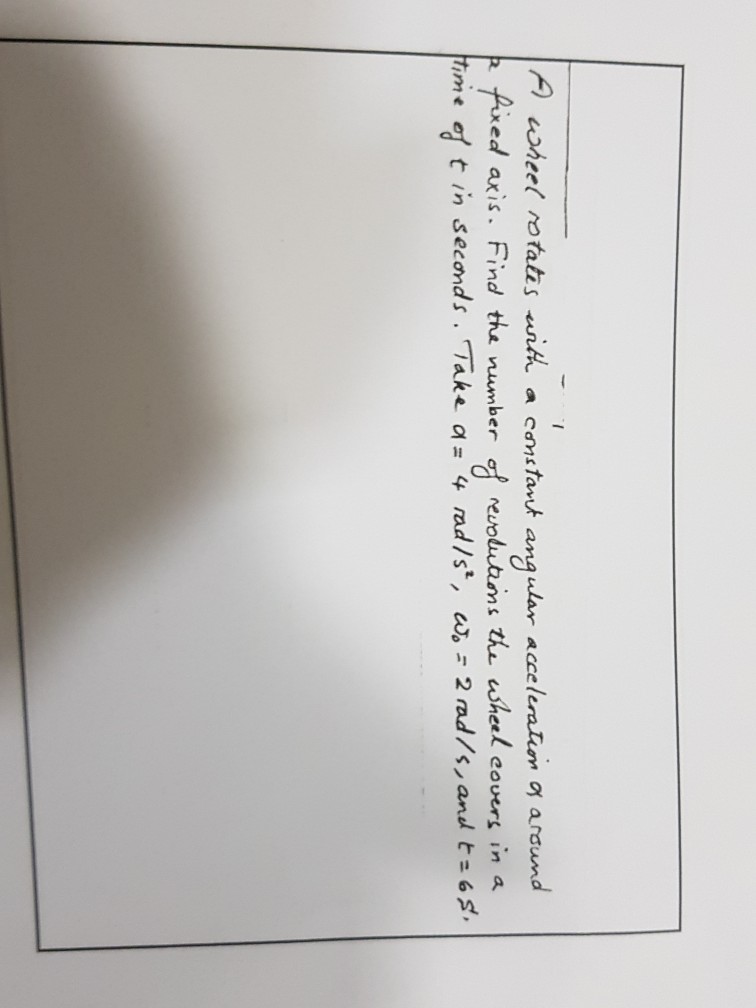 A wheel rotates with a constant angular acceleration α around
a fixed axis. Find the number of revolutions the wheel covers in a
time of t in seconds. Take α = 4 rad/s², ω₀ = 2 rad/s, and t = 6s.